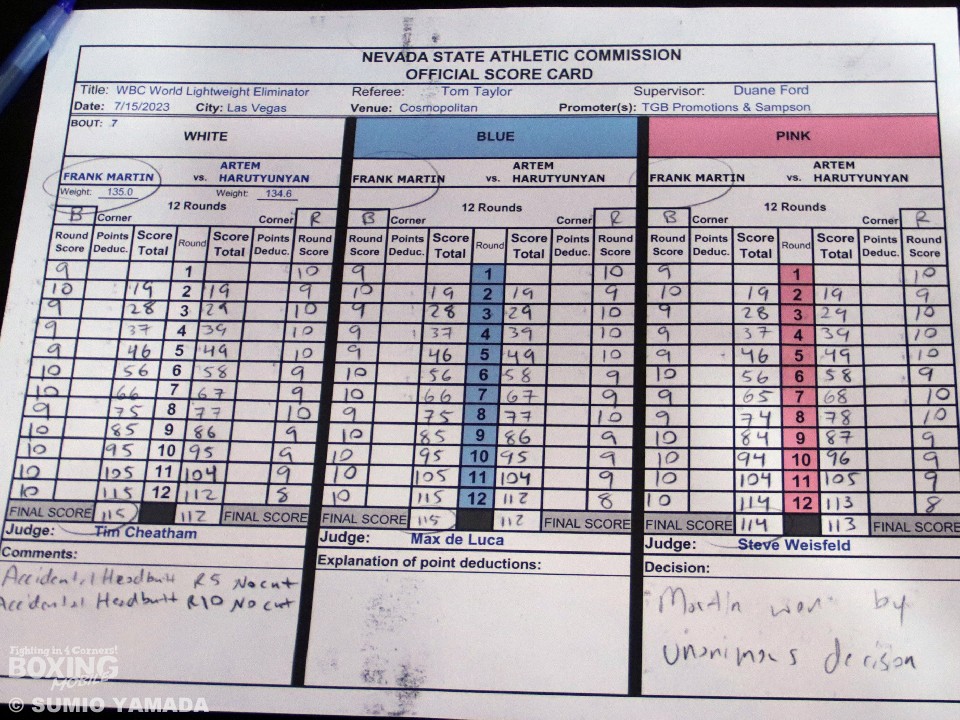 NEVADA STATE ATHLETIC COMMISSION
OFFICIAL SCORE CARD
Title: WBC World Lightweight Eliminator Referee: Tom Taylor Supervisor: Duane Ford
Date: 7/15/2023 City: Las Vegas Venue: Cosmopolitan Promoter(s): TGB Promotions & Sampson
BOUT: 7
WHITE BLUE PINK
ARTEM ARTEM ARTEM
FRANK MARTIN vs. HARUTYUNYAN FRANK MARTIN vs. HARUTYUNYAN FRANK MARTIN vs. HARUTYUNYAN
Weight: 135.0 Weight: 134.6
12 Rounds 12 Rounds 12 Rounds
B Corner Corner R B Corner Corner R B Corner Corner R
Round Points Score Round Score Points Round Round Points Score Round Score Points Round Round Points Score Round Score Points Round
Score Deduc. Total Total Deduc. Score Score Deduc. Total Total Deduc. Score Score Deduc. Total Total Deduc. Score
9 1 10 9 1 10 9 1 10
10 19 2 19 9 10 19 2 19 9 10 19 2 19 9
9 28 3 29 10 9 28 3 29 10 9 28 3 29 10
9 37 4 39 10 9 37 4 39 10 9 37 4 39 10
9 46 5 49 10 9 46 5 49 10 9 46 5 49 10
10 56 6 58 9 10 56 6 58 9 10 56 6 58 9
10 66 7 67 9 10 66 7 67 9 9 65 7 68 10
9 75 8 77 10 9 75 8 77 10 9 74 8 78 10
10 85 9 86 9 10 85 9 86 9 10 84 9 87 9
10 95 10 95 9 10 95 10 95 9 10 94 10 96 9
10 105 11 104 9 10 105 11 104 9 10 104 11 105 9
10 115 12 112 8 10 115 12 112 8 10 114 12 113 8
FINAL SCORE 115 112 FINAL SCORE FINAL SCORE 115 112 FINAL SCORE FINAL SCORE 114 113 FINAL SCORE
Judge: Tim Cheatham Judge: Max de Luca Judge: Steve Weisfeld
Comments: Explanation of point deductions: Decision:
Accidental Headbutt R5 No cut
Accidental Headbutt R10 No cut
Martin won by
unanimous decison
Fighting in 4 Corners!
BOXING
MOBILE
© SUMIO YAMADA